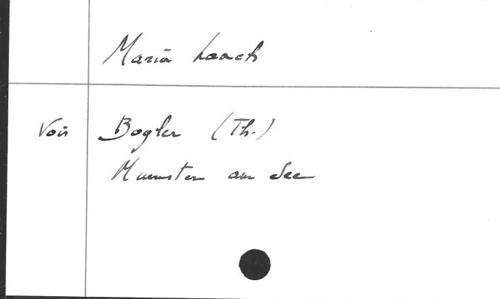 Maria Laach
Voir Bogler (Th.)
Muenster am See